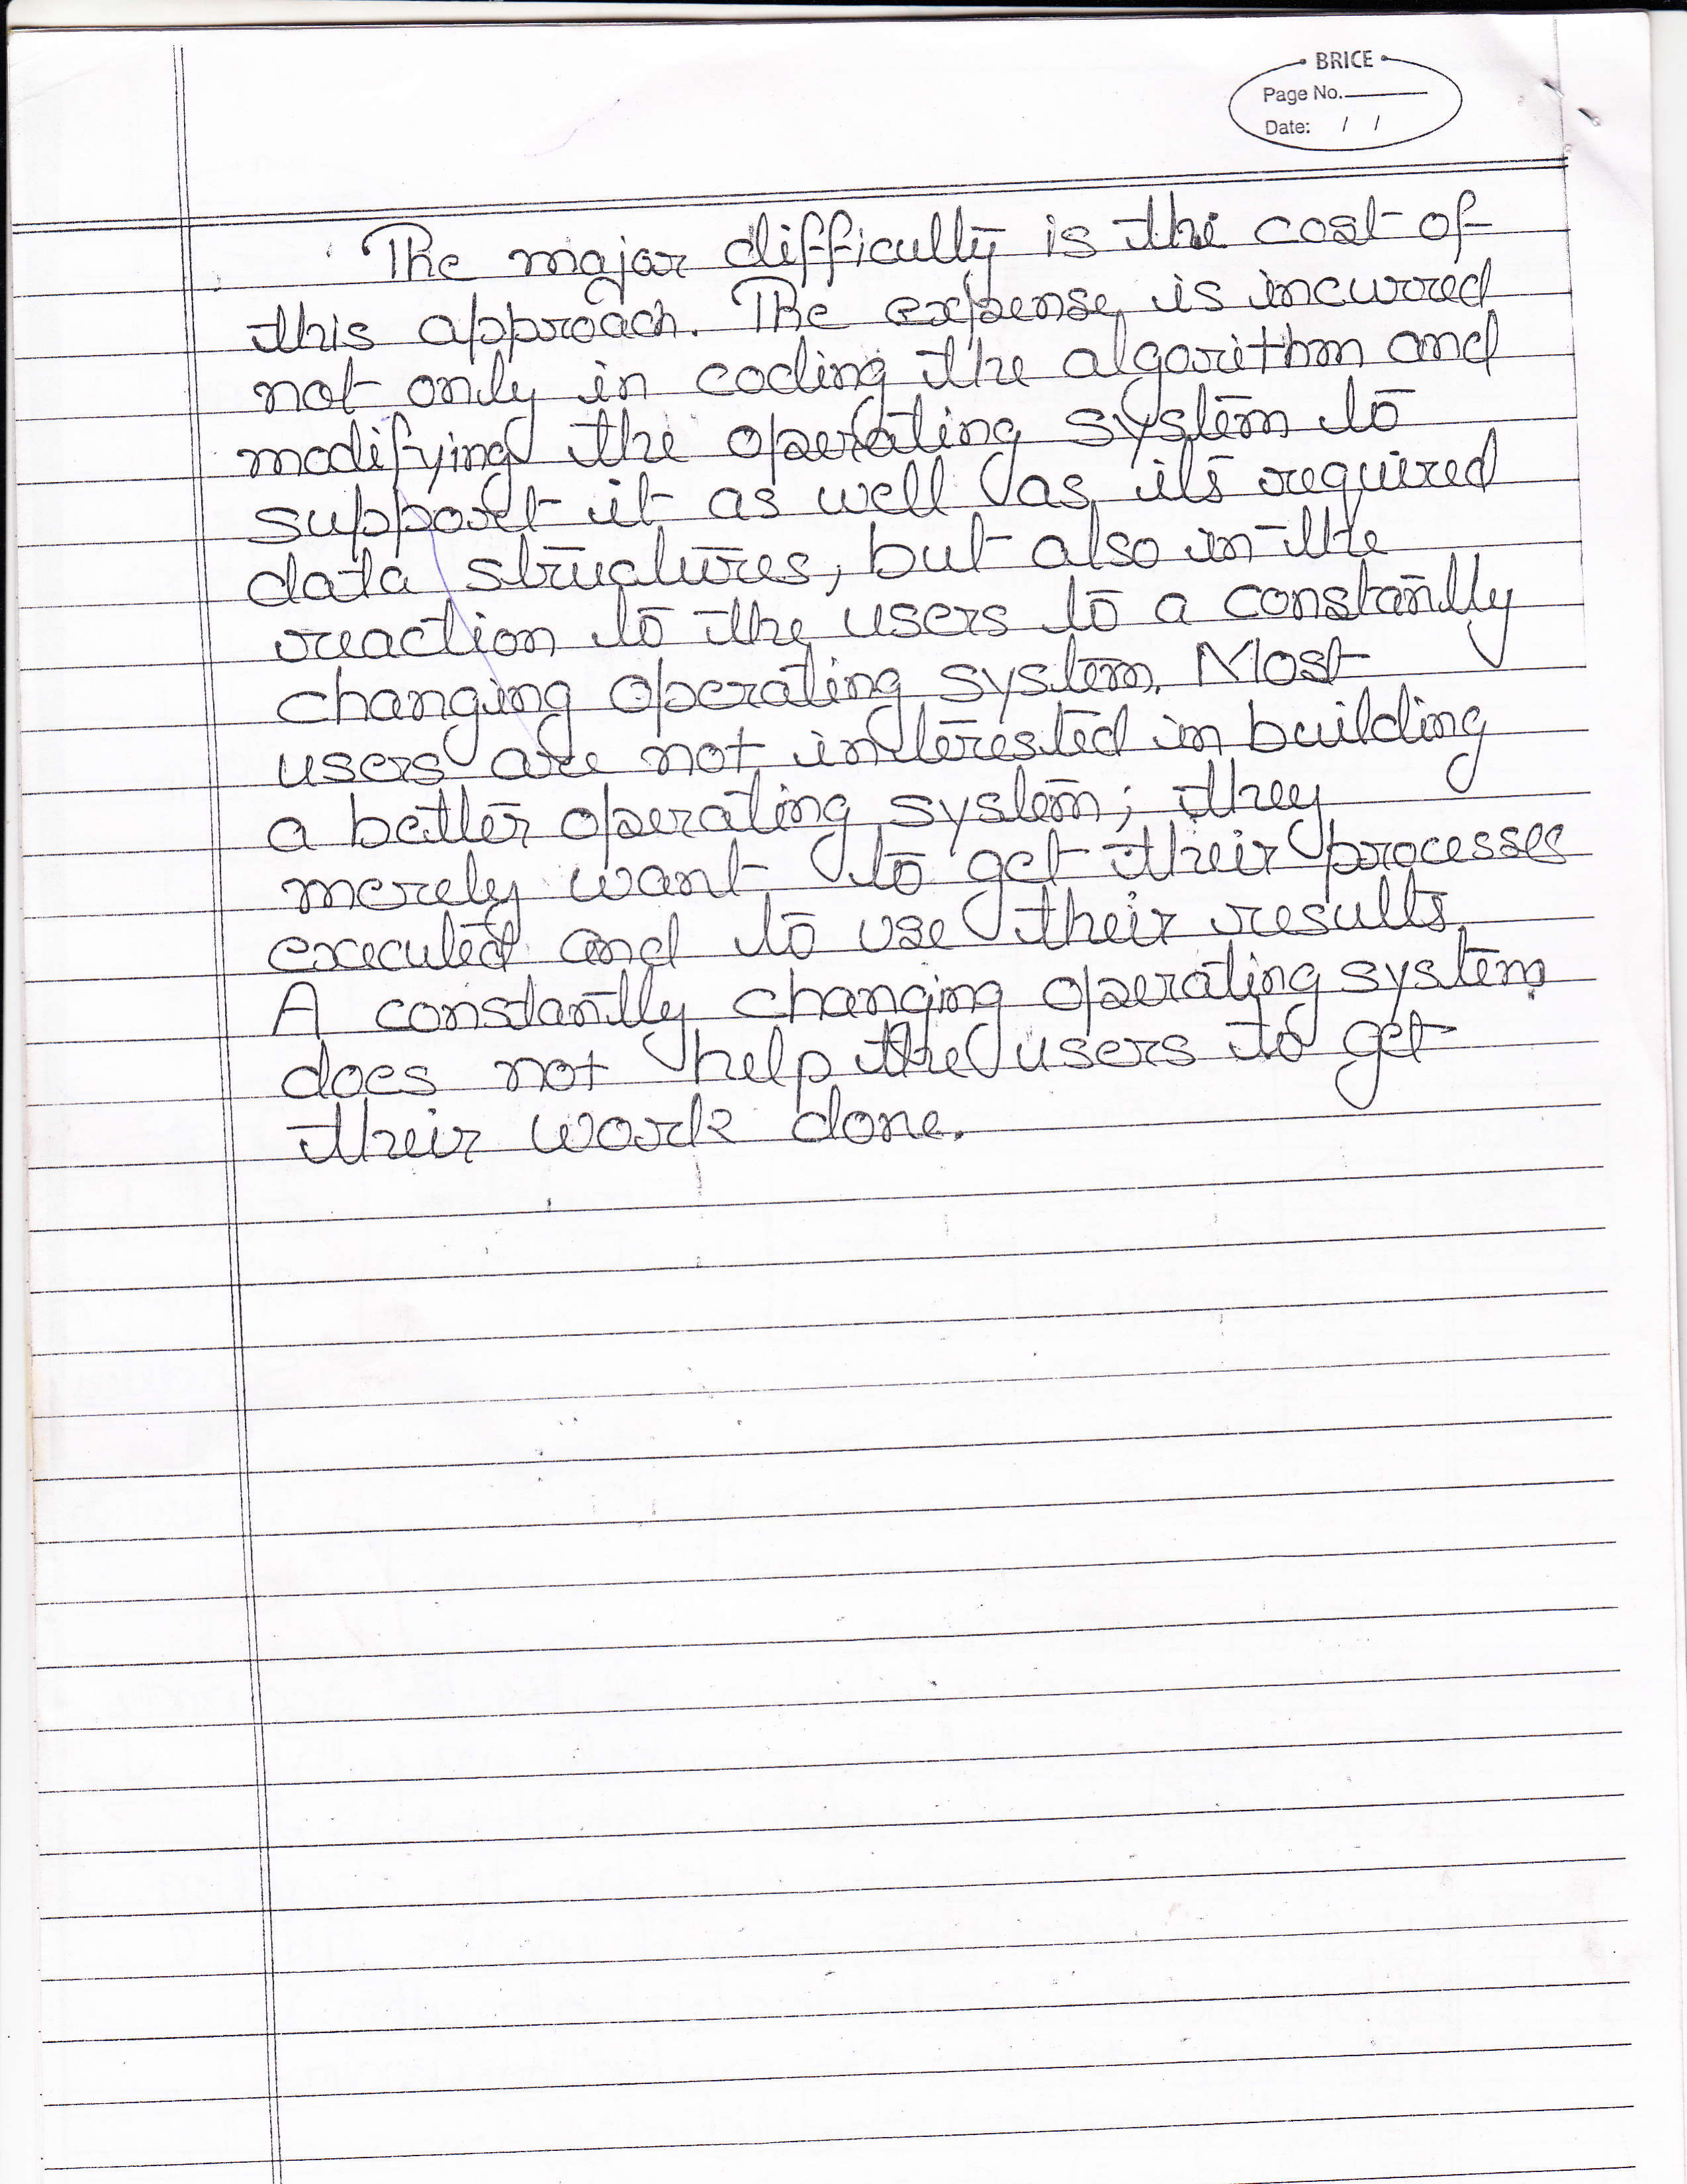 BRICE
Page No.
Date: / /
The major difficulty is the cost of
this approach. The expense is incurred
not only in coding the algorithm and
modifying the operating system to
support it as well as its required
data structures, but also in the
reaction to the users to a constantly
changing operating system. Most
users are not interested in building
a better operating system; they
merely want to get their processes
executed and to use their results.
A constantly changing operating system
does not help the users to get
their work done.